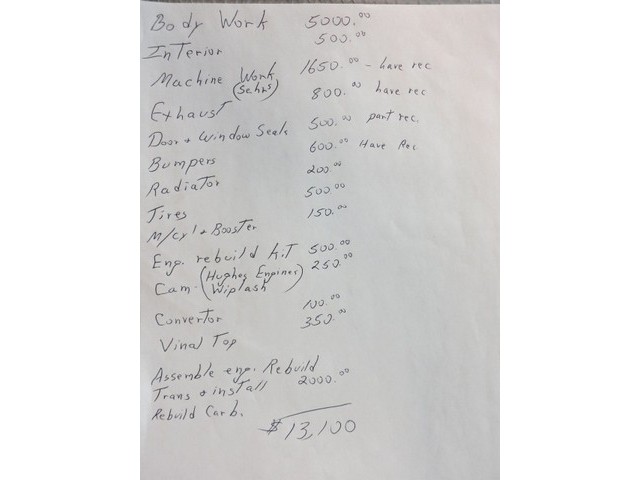 Body Work 5000.00
Interior 500.00
Machine Work 1650.00 - have rec
Exhaust 800.00 have rec
Door + Window Seals 500.00 part rec.
Bumpers 600.00 Have Rec
Radiator 200.00
Tires 500.00
M/Cyl + Booster 150.00
Eng. rebuild kit 500.00
Cam. (Hughes Engines 250.00
Wiplash)
Convertor 100.00
Vinal Top 350.00
Assemble eng. Rebuild
Trans + install 2000.00
Rebuild Carb.
$13,100